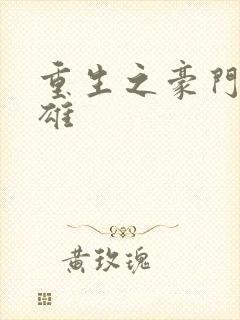 重生之豪門
雄
黃玫瑰